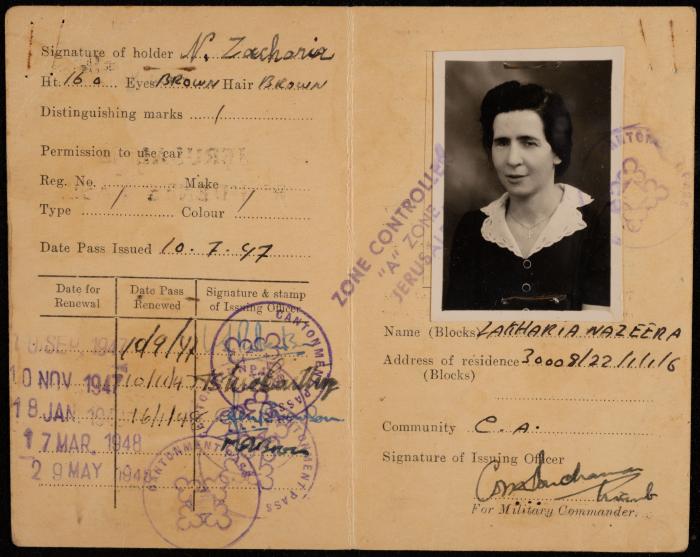 Signature of holder N. Zacharia
Ht. 160 Eyes BROWN Hair BROWN
Distinguishing marks /
Permission to use car
Reg. No. / Make
Type / Colour /
Date Pass Issued 10.7.47
Date for Renewal
Date Pass Renewed
Signature & stamp of Issuing Officer
10 SEP. 1947 10/9/47
10 NOV 1947 10/11/47
18 JAN 16/1/48
17 MAR. 1948
29 MAY 1948
CANTONMENT PASS
CANTONMENT PASS
ZONE CONTROLLER
"A" ZONE
JERUSALEM
Name (Blocks) ZAKHARIA NAZEERA
Address of residence 30008/22/1/1/6
(Blocks)
Community C. A.
Signature of Issuing Officer
For Military Commander.